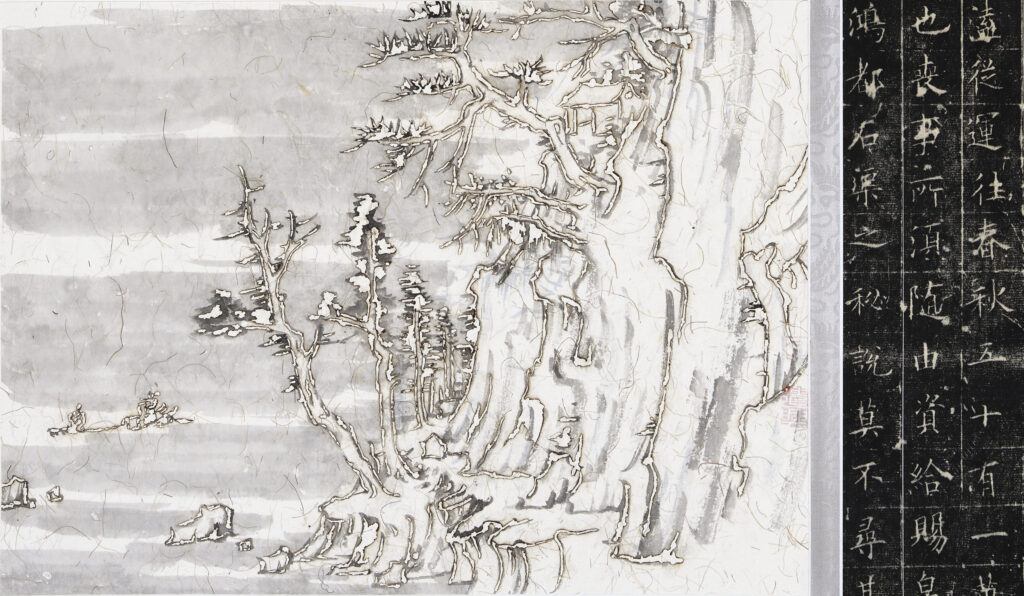 遠從運往春秋五十有一
也喪事所湏随由資給賜皇
鴻都石渠之秘說莫不尋其